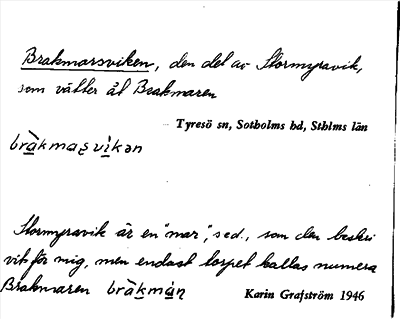 Brakmarsviken, den del av Stormyravik,
som vätter åt Brakmaren
Tyresö sn, Sotholms hd, Sthlms län
bràkmaʂvìkən
Stormyravik är en "mar", s.d., som den beskri
vits för mig, men endast torpet kallas numera
Brakmaren bràkmàṇ
Karin Grafström 1946